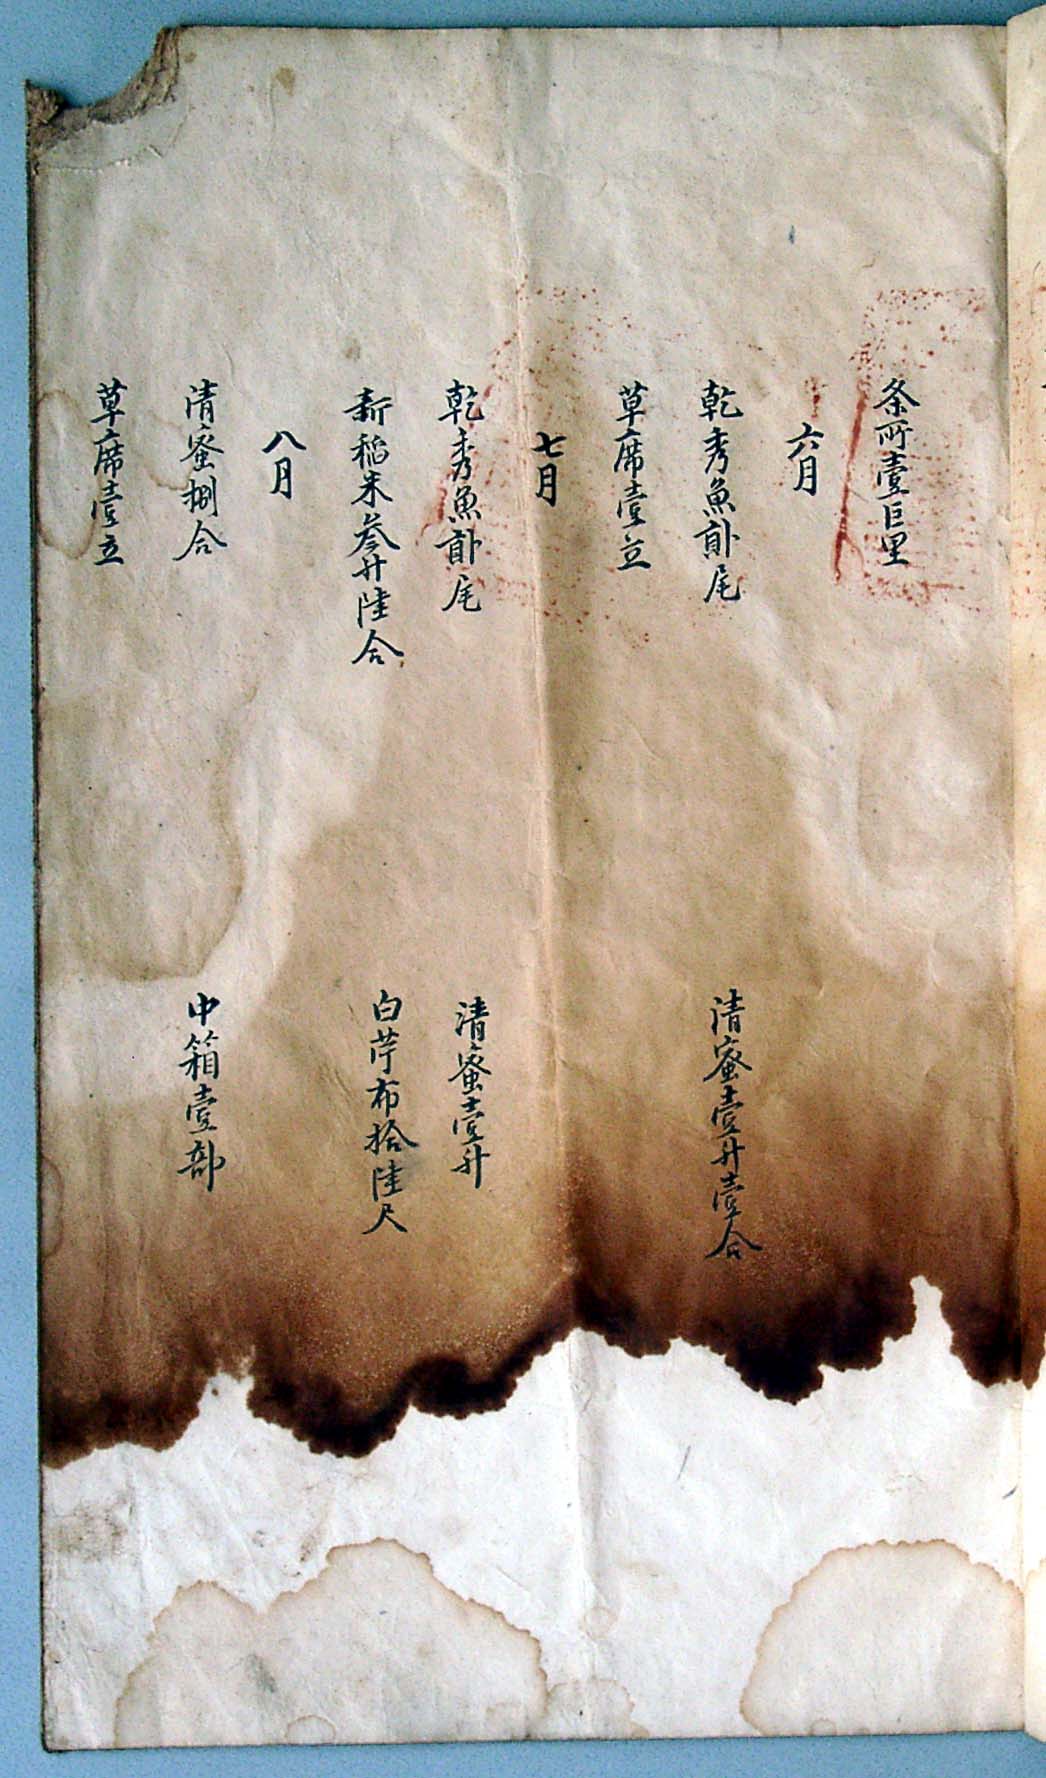 条所壹巨里
六月
乾秀魚 尾 清蜜壹升壹合
草席壹立
七月
乾秀魚 尾 清蜜壹升
新稻米叅升陸合 白苧布拾陸尺
八月
清蜜捌合 中箱壹部
草席壹立